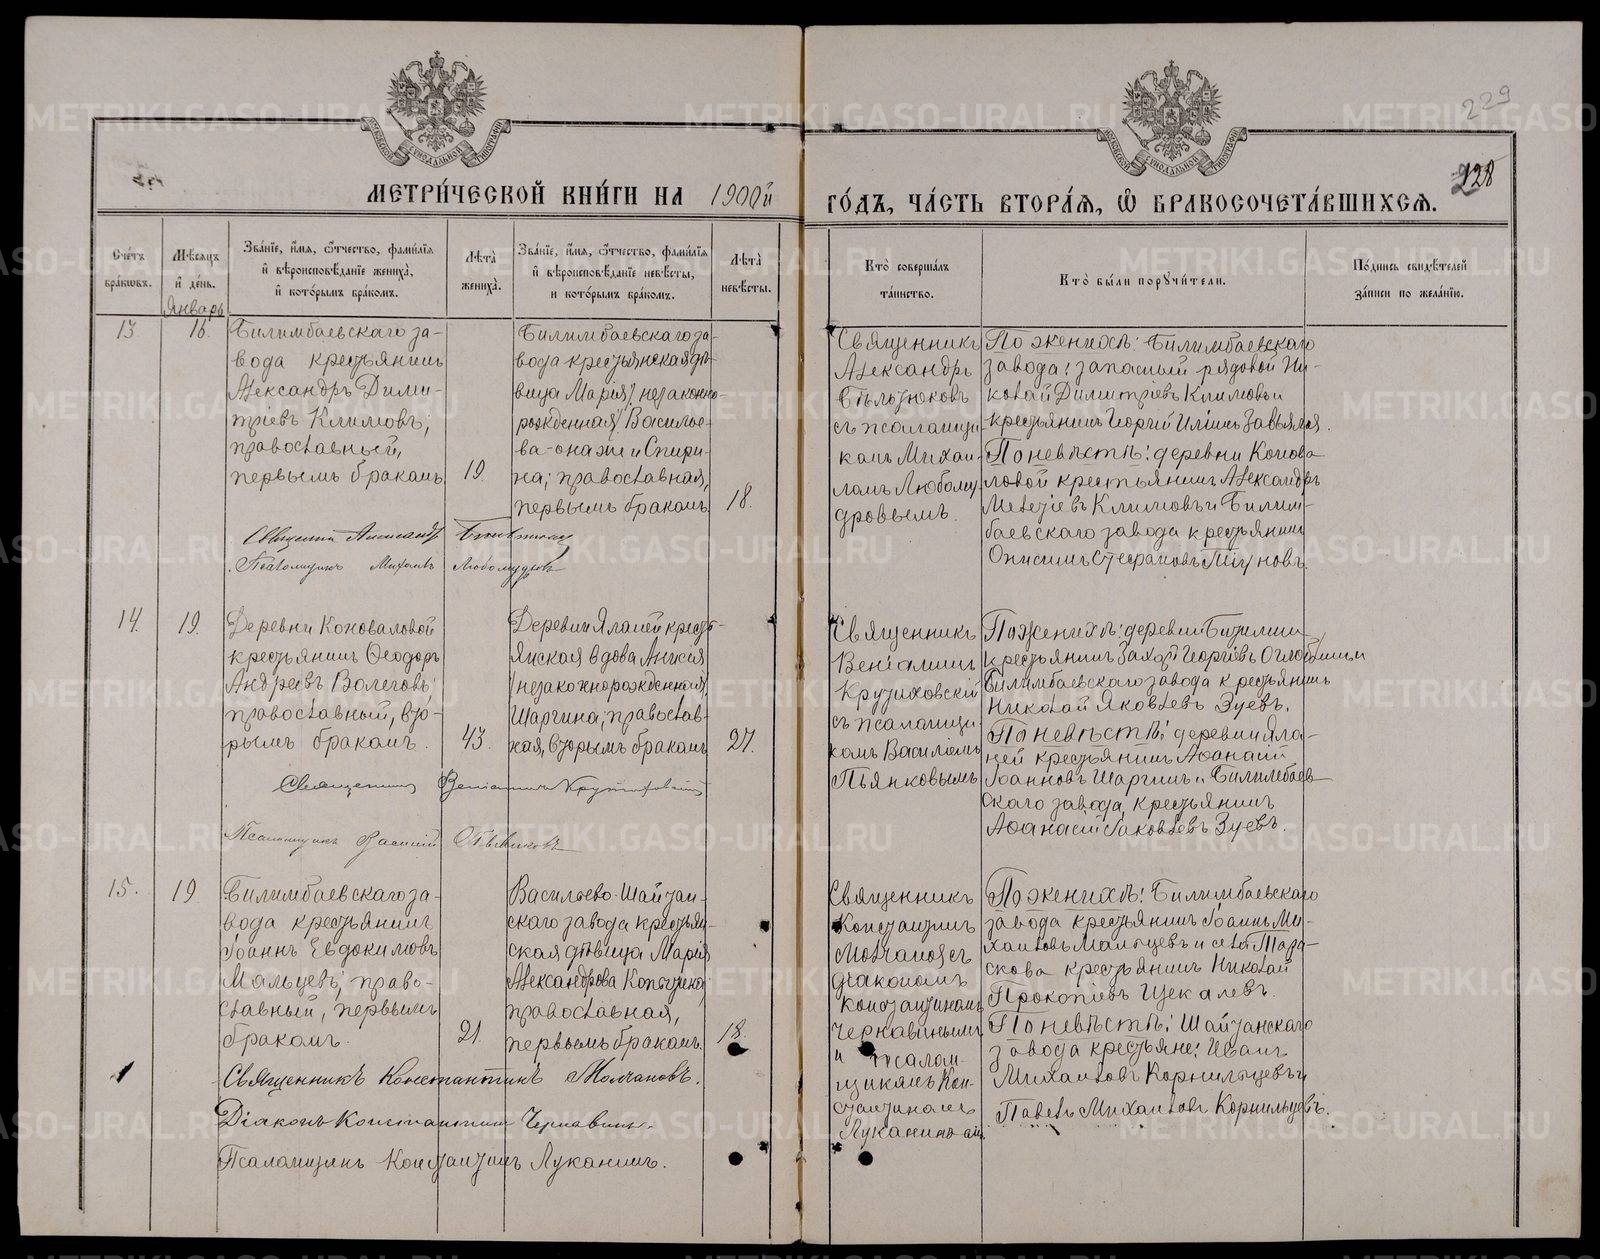 229
228
МЕТРИ́ЧЕСКОЙ КНИ́ГИ НА 1900й
ГО́ДЪ, ЧА́СТЬ ВТОРА́Я, Ѽ БРАКОСОЧЕТА́ВШИХСЯ.
Сче́тъ бра́ковъ.
Мѣ́сяцъ и де́нь.
Январь
Зва́нїе, и́мя, ѻ́тчество, фами́лїя
и҆ вѣроисповѣ́данїе жениха̀,
и҆ кото́рымъ бра́комъ.
Лѣ́та̀ жениха̀.
Зва́нїе, и́мя, ѻ́тчество, фами́лїя
и҆ вѣроисповѣ́данїе невѣ́сты,
и кото́рымъ бра́комъ.
Лѣ́та̀ невѣ́сты.
Кто̀ соверша́лъ
та́инство.
Кто̀ бы́ли порꙋчи́тели.
По́дпись свидѣ́телей
за́писи по жела́нїю.
13
16.
Билимбаевскаго за-
вода крестьянинъ
Александръ Дими-
тріевъ Климовъ;
православный,
первымъ бракомъ
19.
Билимбаевскаго за-
вода крестьянская дѣ-
вица Марія /незаконно
рожденная/ Василье-
ва-она же и Спири-
на; православная,
первымъ бракомъ.
18.
Священникъ
Александръ
Бѣлозюковъ
съ псаломщи-
комъ Михаи-
ломъ Любому
дровымъ.
По женихѣ: Билимбаевскаго
завода: запасный рядовой Ни-
колай Димитріевъ Климовъ и
крестьянинъ Георгій Ильинъ Завьялов.
По невѣстѣ: деревни Конова
ловой крестьянинъ Александръ
Климовъ и Билим-
баевскаго завода крестьянинъ
Онисимъ Стефановъ
Священникъ Александръ
Псаломщикъ Михаилъ Любомудровъ
14.
19.
Деревни Коноваловой
крестьянинъ Ѳеодоръ
Андреевъ Волеговъ;
православный, вто-
рымъ бракомъ.
43.
Деревни Яланей кресть-
янская вдова Анисія
/незаконнорожденная/
Шаргина; православ-
ная, вторымъ бракомъ
27.
Священникъ
Веніаминъ
Крутиховскій
съ псаломщи-
комъ Василіемъ
Пьянковымъ
По женихѣ: деревни
крестьянинъ Георгіевъ и
Билимбаевскаго завода крестьянинъ
Николай Яковлевъ Зуевъ.
По невѣстѣ: деревни Яла-
ней крестьянинъ Аѳанасій
Іоанновъ Шаргинъ и Билимбаев-
скаго завода крестьянинъ
Аѳанасій Іаковлевъ Зуевъ.
Священникъ Веніаминъ Крутиховскій
Псаломщикъ Василій
15.
19
Билимбаевскаго за-
вода крестьянинъ
Іоаннъ Евдокимовъ
Мальцевъ; право-
славный, первымъ
бракомъ.
21.
Васильево-Шайтан-
скаго завода крестьян-
ская дѣвица Марія
Александрова
православная,
первымъ бракомъ.
18.
Священникъ
Константинъ
Молчановъ съ
діакономъ
Константиномъ
Чернавинымъ
и псалом-
щикомъ Кон-
стантиномъ
Луканинымъ.
По женихѣ: Билимбаевскаго
завода крестьянинъ Іоаннъ Ми-
хаиловъ Мальцевъ и села Тара-
скова крестьянинъ Николай
Прокопіевъ Щекалевъ.
По невѣстѣ: Шайтанскаго
завода крестьяне: Иванъ
Михаиловъ Корнильцевъ и
Павелъ Михаиловъ Корнильцевъ.
Священникъ Константинъ Молчановъ.
Діаконъ Константинъ Чернавинъ.
Псаломщикъ Константинъ Луканинъ.
METRIKI.GASO-URAL.RU